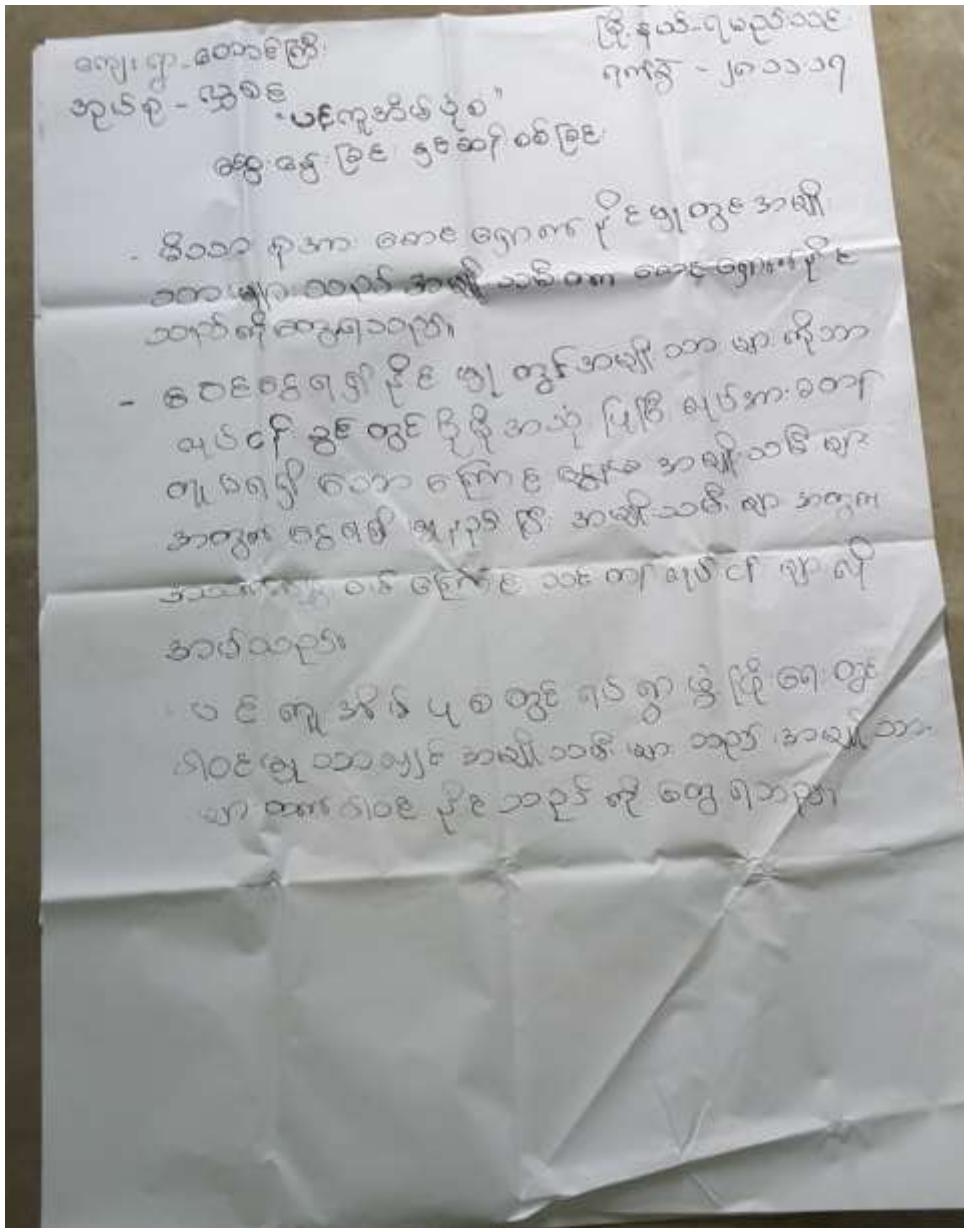 ကျေးရွာ-တောင်ကြီး
မြို့နယ်-ရမည်းသင်း
အုပ်စု - လွှစင်
ရက်စွဲ - ၂၈.၁၁.၁၇
"ပင့်ကူအိမ်ပုံစံ"
ဆွေးနွေးခြင်း နှင့်ဆန်းစစ်ခြင်း
- မိသားစုအား စောင့်ရှောက်နိုင်မှုတွင်အမျိုး
သားများသာမက အမျိုးသမီး ကပါ စောင့်ရှောက်နိုင်
သည်ကိုတွေ့ရသည်။
- ဝင်ငွေရရှိနိုင်မှု တွင်အမျိုးသား များကိုသာ
လုပ်ငန်းခွင်တွင် ပိုမိုအသုံးပြုပြီး လုပ်အားခတန်း
တူမရရှိသောကြောင့် အမျိုးသမီးများ
အတွက်ငွေရရှိမှုနည်းပြီး အမျိုးသမီးများအတွက်
ကြောင်း သင်တန်းလုပ်ငန်းများလို
အပ်သည်။
- ပင့်ကူအိမ်ပုံစံတွင် ရပ်ရွာဖွံ့ဖြိုးရေးတွင်
ပါဝင်မှု အမျိုးသမီးများသည် အမျိုးသား
များ ထက်ပါဝင်နိုင်သည်ကိုတွေ့ရသည်။